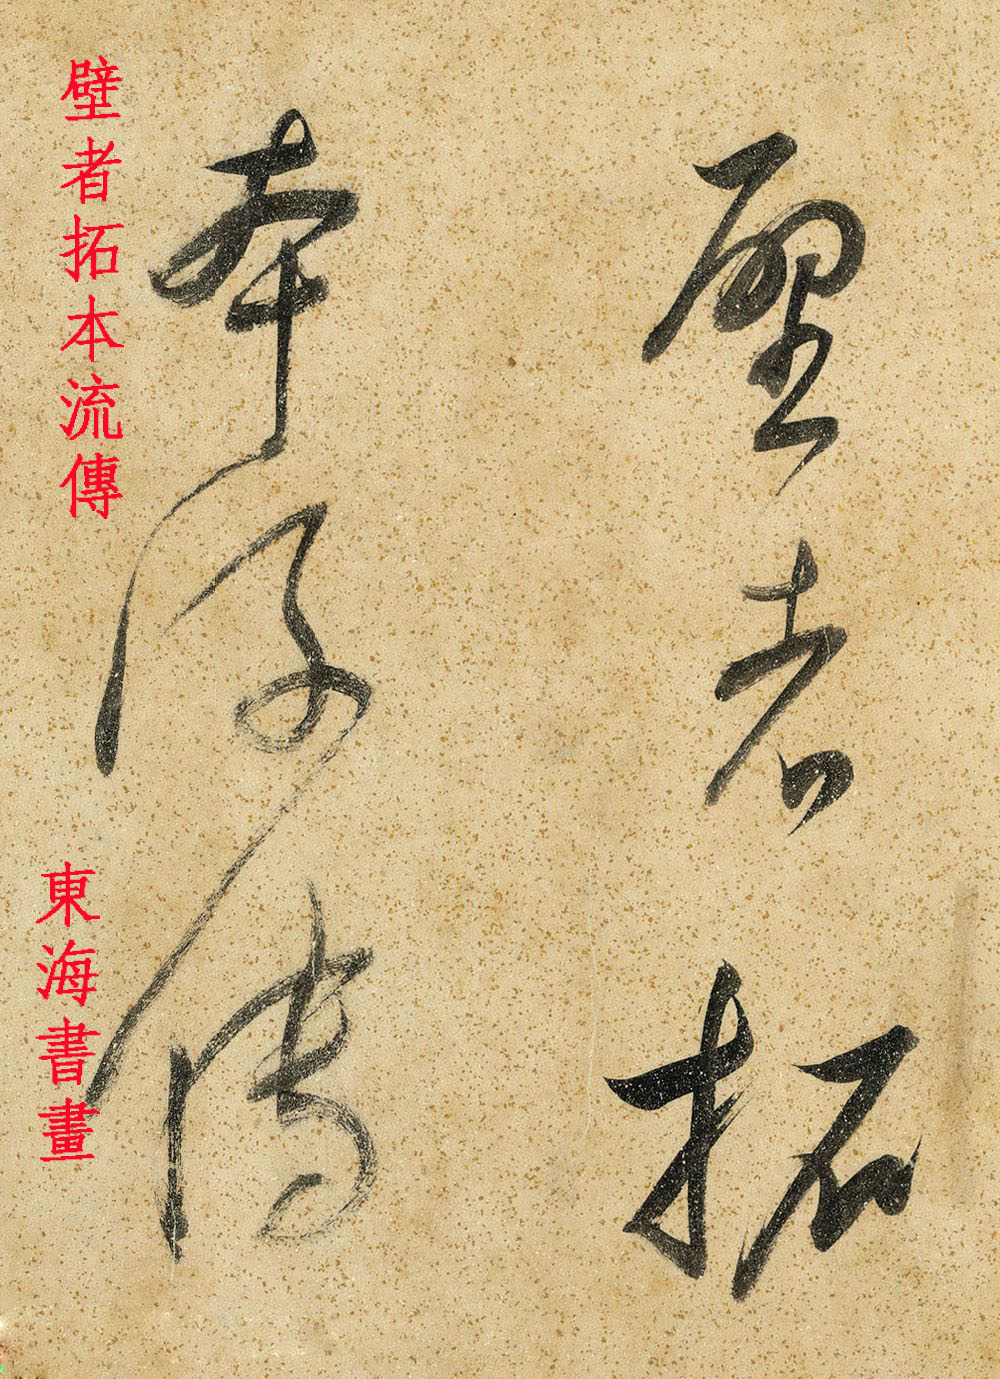 壁者拓
本流傳
壁者拓本流傳
東海書畫